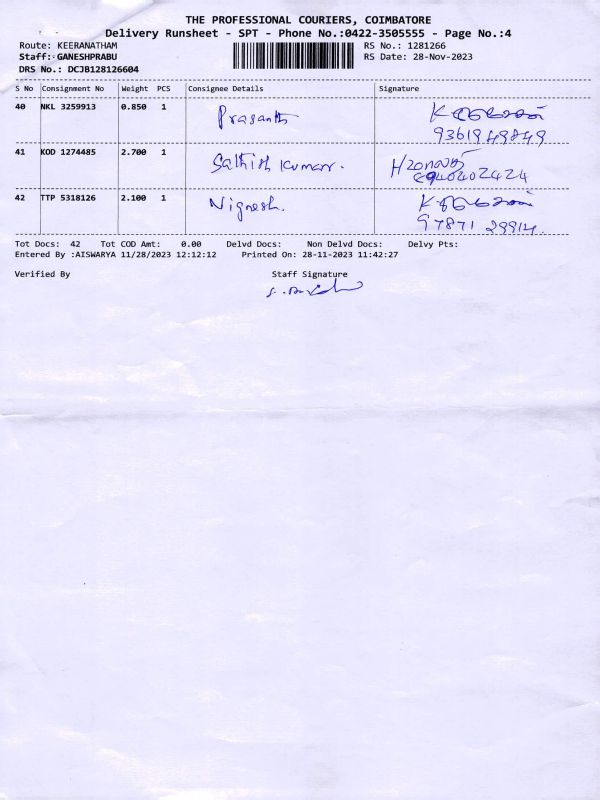 THE PROFESSIONAL COURIERS, COIMBATORE
Delivery Runsheet - SPT - Phone No.:0422-3505555 - Page No.:4
Route: KEERANATHAM RS No.: 1281266
Staff: GANESHPRABU RS Date: 28-Nov-2023
DRS No.: DCJB128126604
S No Consignment No Weight PCS Consignee Details Signature
40 NKL 3259913 0.850 1 Prasanth
9361949849
41 KOD 1274485 2.700 1 Sathish Kumar.
42 TTP 5318126 2.100 1 Vignesh.
97871 29914
Tot Docs: 42 Tot COD Amt: 0.00 Delvd Docs: Non Delvd Docs: Delvy Pts:
Entered By :AISWARYA 11/28/2023 12:12:12 Printed On: 28-11-2023 11:42:27
Verified By Staff Signature